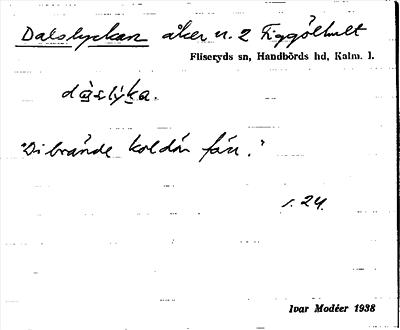 Dalslyckan åker n. 2 Figgölhult
Fliseryds sn, Handbörds hd, Kalm. l.
dàslýka.
"Di brände koldn fän."
s. 24.
Ivar Modéer 1938